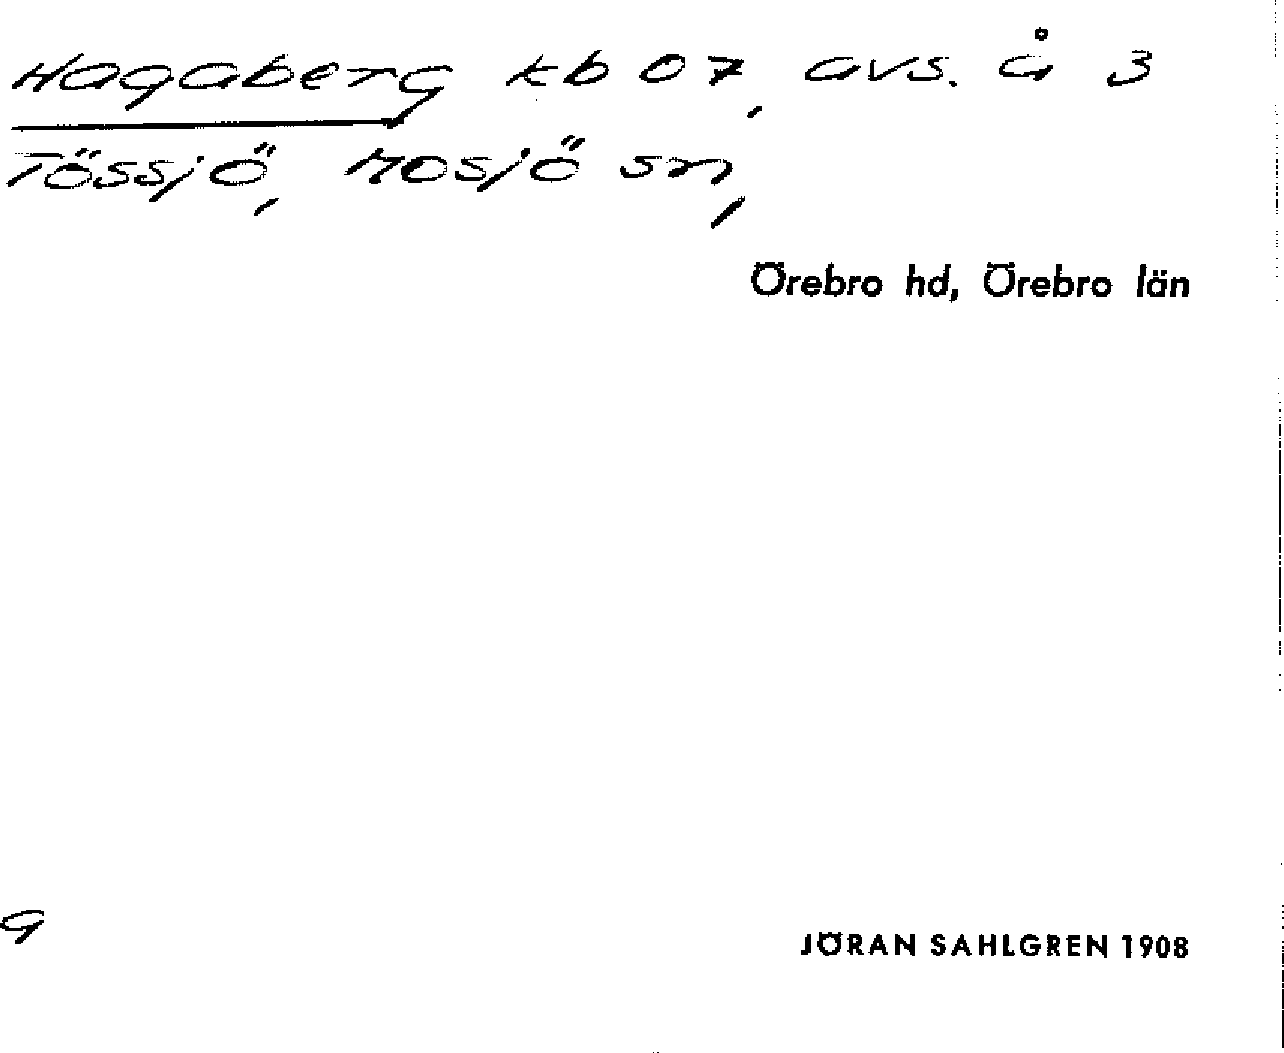 Hagaberg kb 07, avs. å 3
Tössjö, Mosjö sn,
Örebro hd, Örebro län
9
JÖRAN SAHLGREN 1908